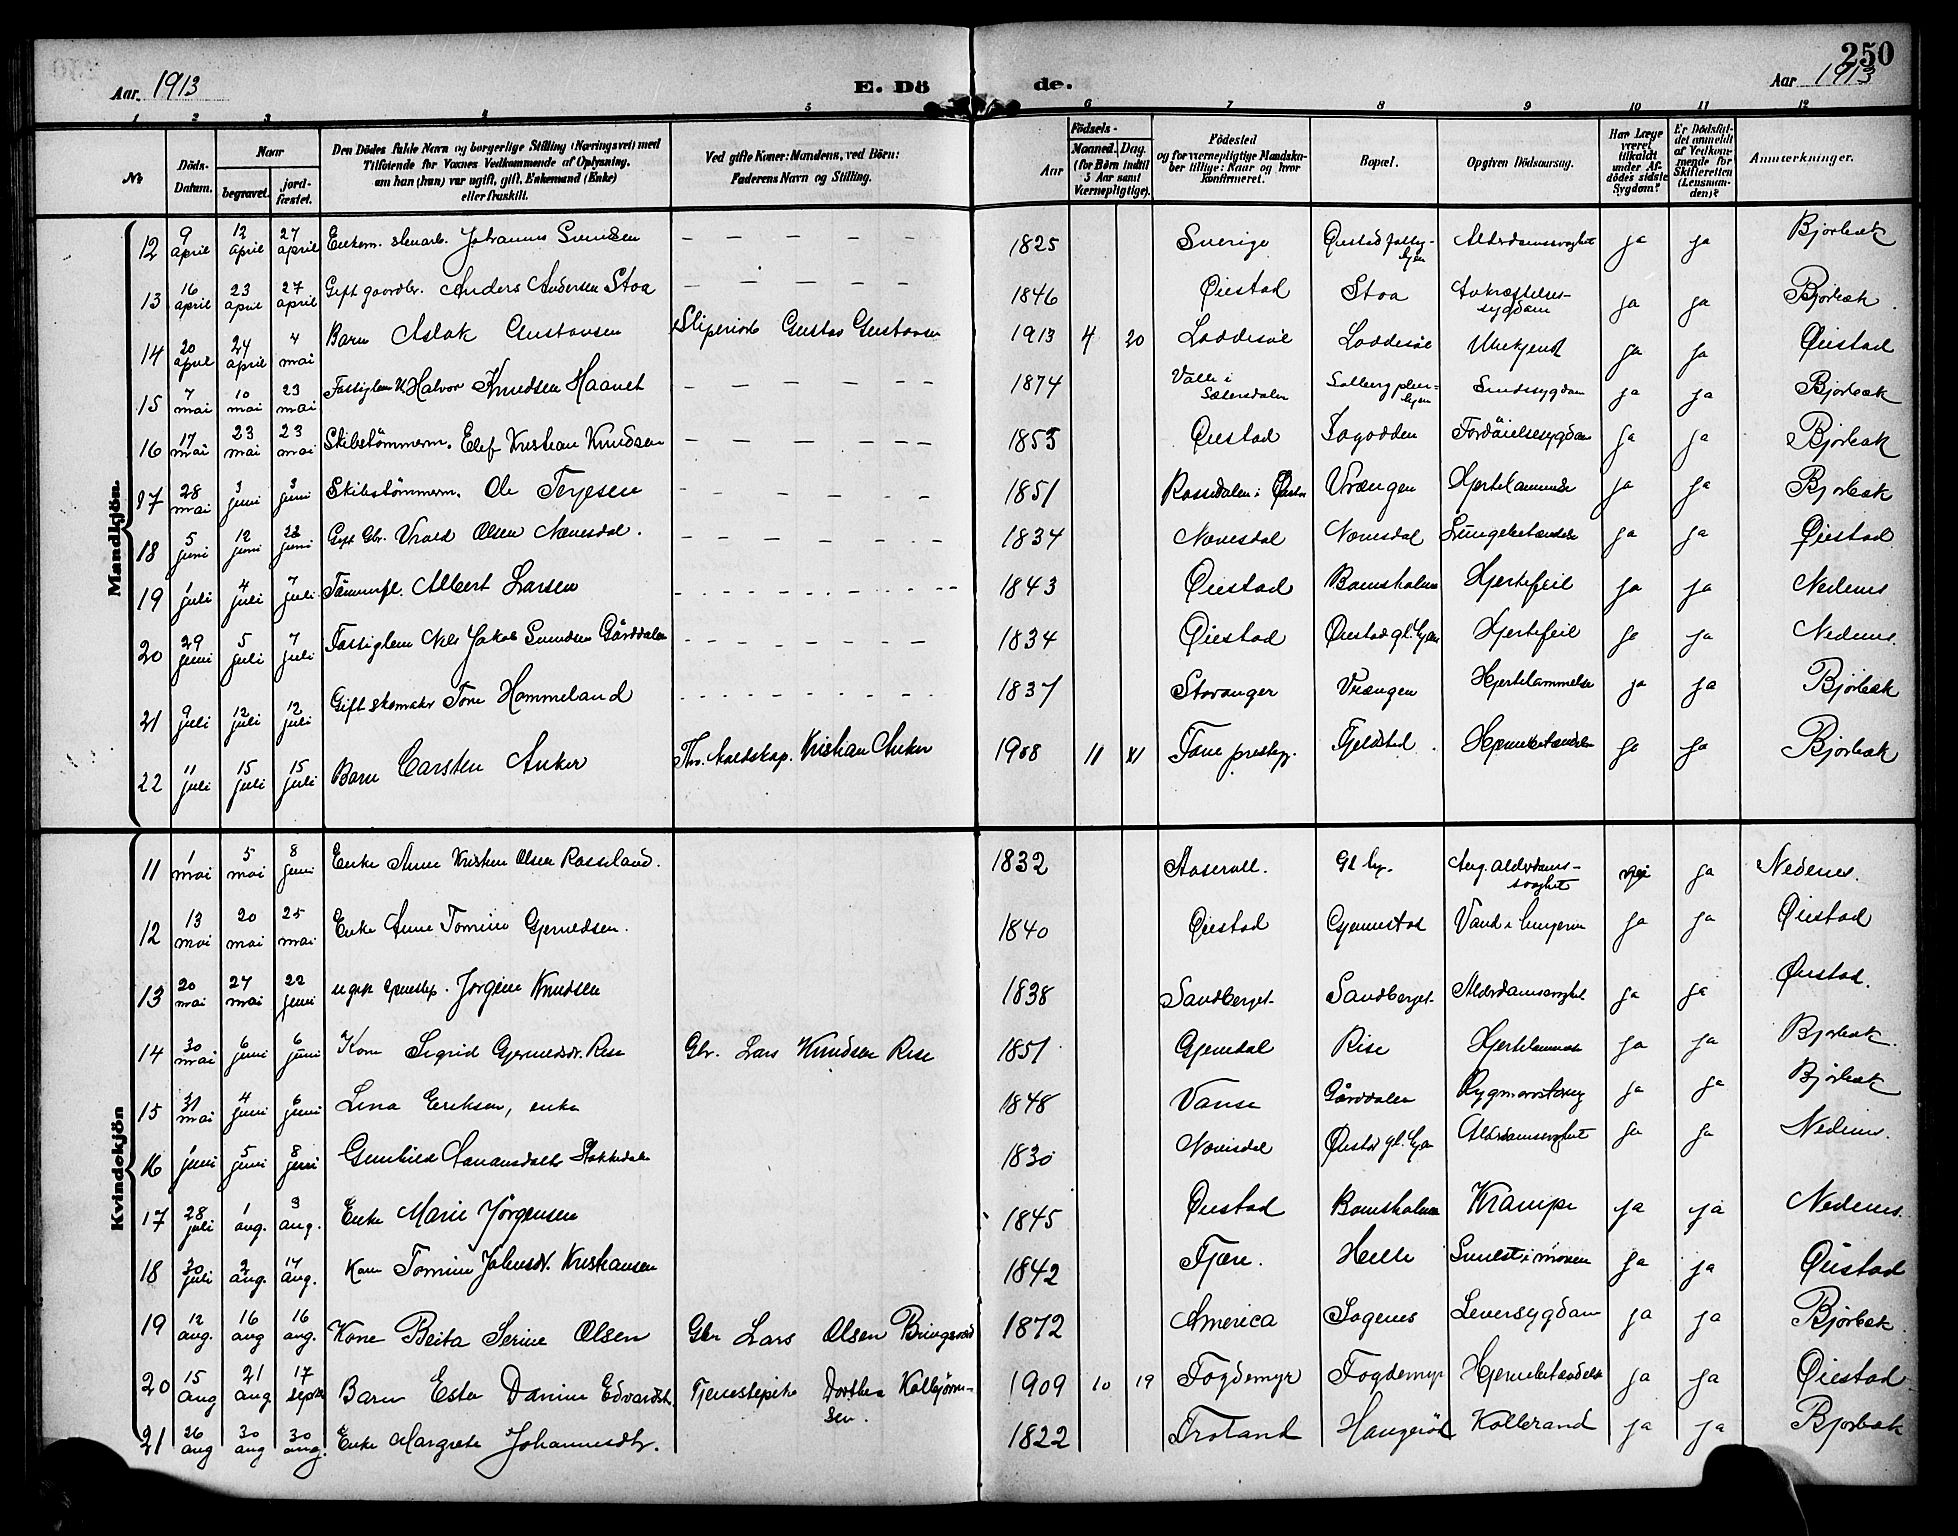 250
Aar 1913 E. Dö de. Aar 1913
1 2 3 4 5 6 7 8 9 10 11 12
No Döds-Datum. Naar begravet. jordfæstet. Den Dödes fulde Navn og borgerlige Stilling (Næringsvei) med Tilföiende for Voxnes Vedkommende af Oplysning, om han (hun) var ugift, gift, Enkemand (Enke) eller fraskilt. Ved gifte Koner: Mandens, ved Börn: Faderens Navn og Stilling. Aar Födsels- Maaned. Dag. (for Börn indtil 5 Aar samt Værnepligtige). Födested og for værnepligtige Mandskaber tillige: Naar og hvor konfirmeret. Bopæl. Opgiven Dödsaarsag. Har Læge været tilkaldt under Afdödes sidste Sygdom? Er Dödsfaldet anmeldt af Vedkommende for Skifteretten (Lensmanden)? Anmærkninger.
Mandkjön.
12 9 april 12 april 27 april Enkem. stenarb. Johannes Svendsen — — — — — 1825 Sverige Øiestad fattigbyen Alderdomssvaghet ja ja Bjorbæk
13 16 april 23 april 27 april Gift gaardbr. Anders Andersen Stoa — — — — — 1846 Øiestad Stoa Avkræftelsessygdom ja ja Bjorbæk
14 20 april 24 april 4 mai Barn Aslak Gustavsen Sliperiarb. Gustav Gustavsen 1913 4 20 Løddesøl Løddesøl Ukjendt ja ja Øiestad
15 7 mai 10 mai 23 mai Fattiglem Halvor Knudsen Haavet — — — — — 1874 Valle i Sætersdalen Solberg pleiebyen Sindssygdom ja ja Bjorbæk
16 17 mai 23 mai 23 mai Skibstömmerm. Elef Kristian Knudsen — — — — — 1853 Øiestad Sagodden Fordöielsesygdom ja ja Bjorbæk
17 28 mai 3 juni 3 juni Skibstömmerm. Ole Terjesen — — — — — 1851 Rossedalen i Øiestad Vrængen Hjertelammelse ja ja Bjorbæk
18 5 juni 12 juni 22 juni Gift Gbr. Vrald Olsen Nævesdal. — — — — — 1834 Nævesdal Nævesdal Lungebetændelse ja ja Øiestad
19 1 juli 4 juli 7 juli Tömmerfl. Albert Larsen — — — — — 1843 Øiestad Bomsholmen Hjertefeil ja ja Nedenes
20 29 juni 5 juli 7 juli Fattiglem Nils Jakob Svendsen Gårddalen — — — — — 1834 Øiestad Øiestad gl. hjem Hjertefeil ja ja Nedenes.
21 9 juli 12 juli 12 juli Gift skomaker Tore Hommeland — — — — — 1837 Stavanger Vrængen Hjertelammelse ja ja Bjorbæk
22 11 juli 15 juli 15 juli Barn Carsten Anker Kristian Anker 1908 11 Fane prestegj. Fjeldsted Hjernebetændelse ja ja Bjorbæk
Kvindekjön
11 1 mai 5 mai 8 juni Enke Anne Kristine Olsen Rosseland. 1832 Aaserall. Gl. hj. Ang. alderdomssvaghet nei ja Nedenes.
12 13 mai 20 mai 25 mai Enke Anne Tomine Gjermundsen. 1840 Øiestad Gjennestad Vand i lungerne ja ja Øiestad
13 20 mai 27 mai 22 juni ugift tjenestep. Jörgine Knudsen 1838 Sandberget. Sandberget. Alderdomssvaghet ja ja Øiestad.
14 30 mai 6 juni 6 juni Kone Sigrid Gjermundsdr. Rise Gbr. Lars Knudsen Rise 1851 Gjevedal Rise Hjertelammelse ja ja Bjorbæk.
15 31 mai 4 juni 6 juni Lina Eriksen, enke 1848 Vanse Gårddalen Rygmarvstæring ja ja Bjorbæk
16 1 juni 5 juni 8 juni Gunhild Aanonsdatter Stokkedalen 1830 Nævisdal Øiestad gl. hjem Alderdomssvaghet ja ja Nedenes.
17 28 juli 1 aug. 3 aug. Enke Marie Jörgensen 1845 Øiestad Bomsholmen Krampe ja ja Nedenes.
18 30 juli 2 aug. 17 aug. Kone Tomine Johnsdr. Kristiansen 1842 Fjære. Helle ja ja Øiestad
19 12 aug. 16 aug 16 aug. Kone Beita Serine Olsen Gbr Lars Olsen Bringsvær 1872 America Sagenes Leversygdom ja ja Bjorbæk.
20 15 aug 21 aug. 17 septbr Barn Ester Danine Edvardsdtr. Tjenestepike Dorthea Kolbjörnsen. 1909 10 19 Fogdemyr Fogdemyr Hjernebetændelse ja ja Øiestad
21 26 aug 30 aug 30 aug. Enke Margrete Johannesdtr. 1822 Froland Haugeröd Koldbrand ja ja Bjorbæk